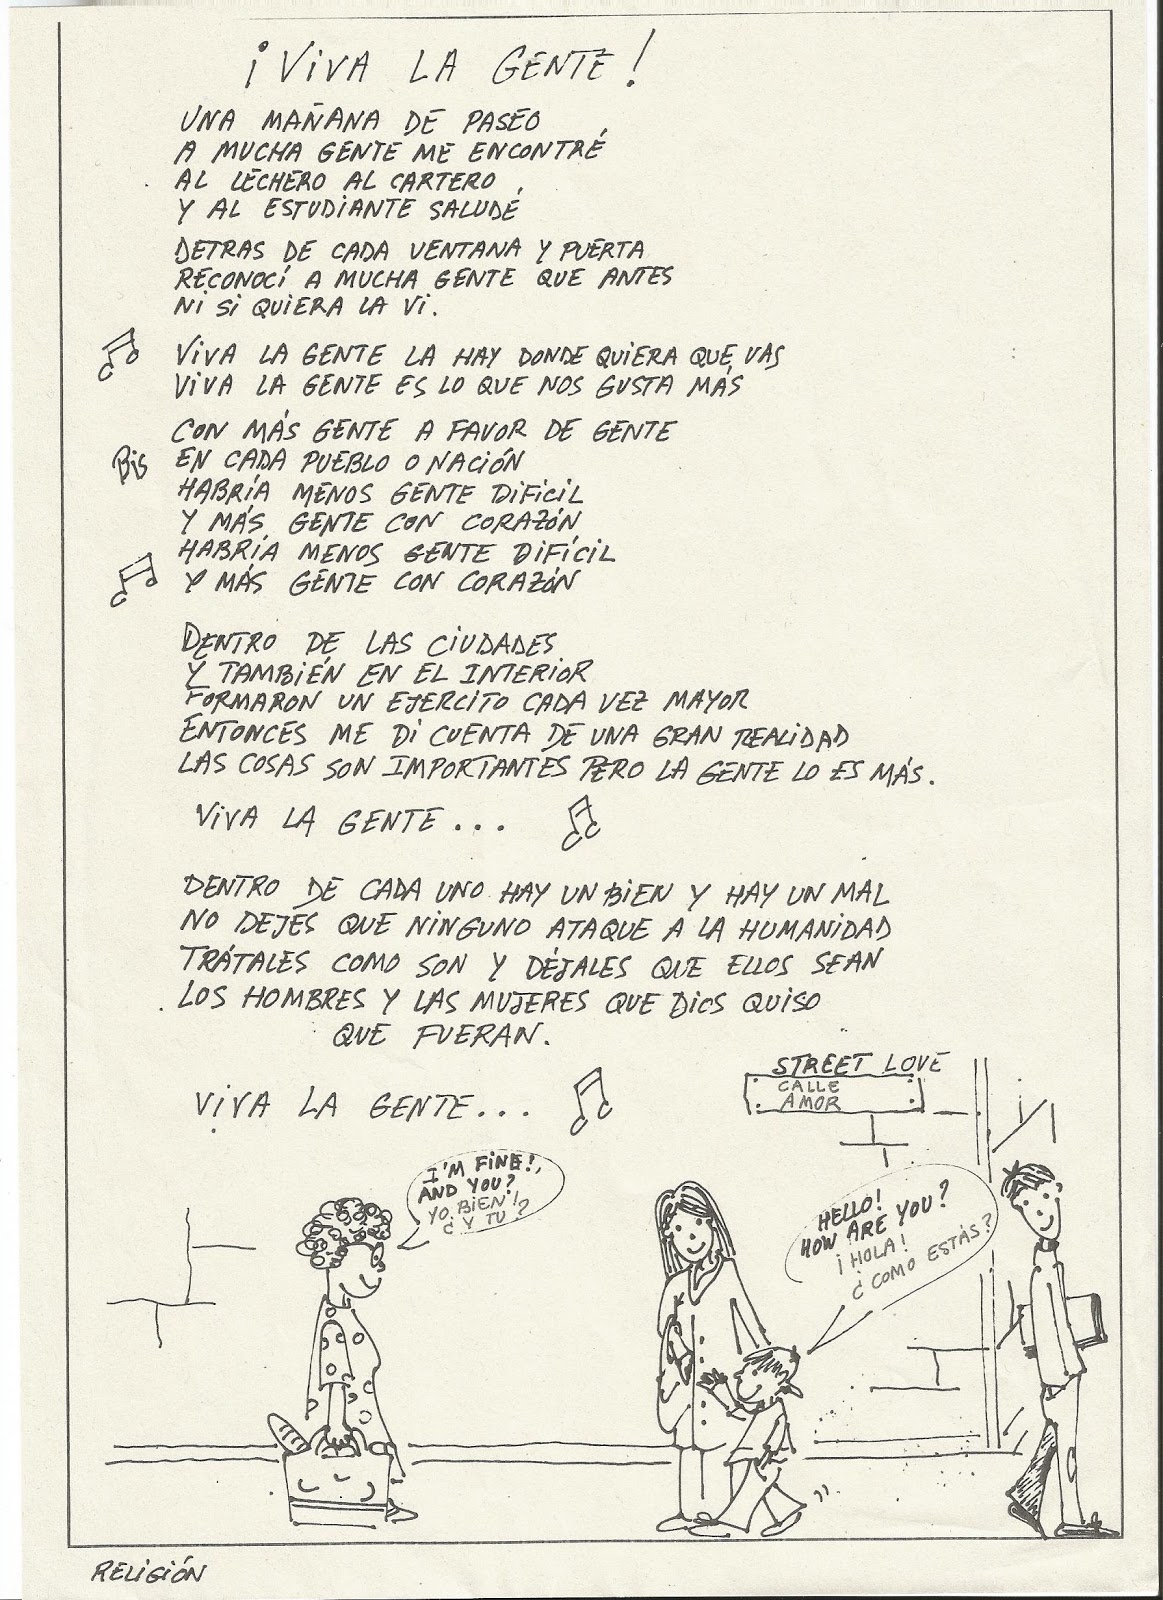 ¡VIVA LA GENTE!
UNA MAÑANA DE PASEO
A MUCHA GENTE ME ENCONTRÉ
AL LECHERO AL CARTERO
Y AL ESTUDIANTE SALUDÉ
DETRAS DE CADA VENTANA Y PUERTA
RECONOCÍ A MUCHA GENTE QUE ANTES
NI SI QUIERA LA VI.
VIVA LA GENTE LA HAY DONDE QUIERA QUE VAS
VIVA LA GENTE ES LO QUE NOS GUSTA MÁS
CON MÁS GENTE A FAVOR DE GENTE
Bis EN CADA PUEBLO O NACIÓN
HABRÍA MENOS GENTE DIFICIL
Y MÁS GENTE CON CORAZÓN
HABRÍA MENOS GENTE DIFÍCIL
Y MÁS GENTE CON CORAZÓN
DENTRO DE LAS CIUDADES
Y TAMBIÉN EN EL INTERIOR
FORMARON UN EJERCITO CADA VEZ MAYOR
ENTONCES ME DI CUENTA DE UNA GRAN REALIDAD
LAS COSAS SON IMPORTANTES PERO LA GENTE LO ES MÁS.
VIVA LA GENTE...
DENTRO DE CADA UNO HAY UN BIEN Y HAY UN MAL
NO DEJES QUE NINGUNO ATAQUE A LA HUMANIDAD
TRÁTALES COMO SON Y DÉJALES QUE ELLOS SEAN
LOS HOMBRES Y LAS MUJERES QUE DIOS QUISO
QUE FUERAN.
VIVA LA GENTE...
STREET LOVE
CALLE
AMOR
I'M FINE!,
AND YOU?
YO BIEN!
¿Y TU?
HELLO!
HOW ARE YOU?
¡HOLA!
¿COMO ESTÁS?
RELIGIÓN